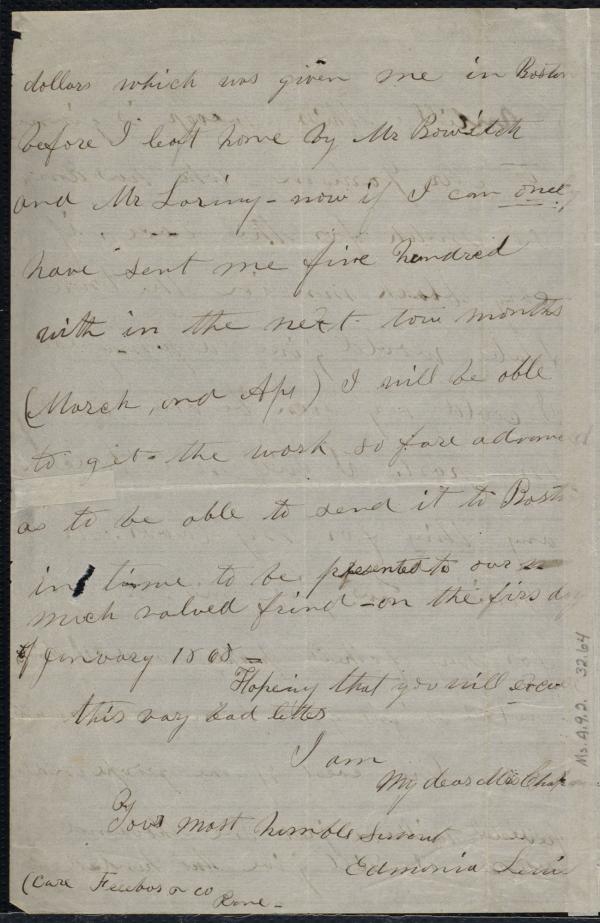 dollars which was given me in Boston
before I leat home by Mr Bowditch
and Mr Loring - now if I can once
have sent me five hundred
with in the next tow months
(March, and Apl) I will be able
to get the work so fare advanc
as to be able to send it to Bost
in time to be presented to our
much valued frind - on the firs day
of Jinuary 1868 =
Hopeing that you will excu
this vary bad letter
I am
My dear Mrs Chap
Your most humble servent
Edmonia Lewi
(Care Freebor &amp; co
Rome -
Ms. A.9.2. 32.64